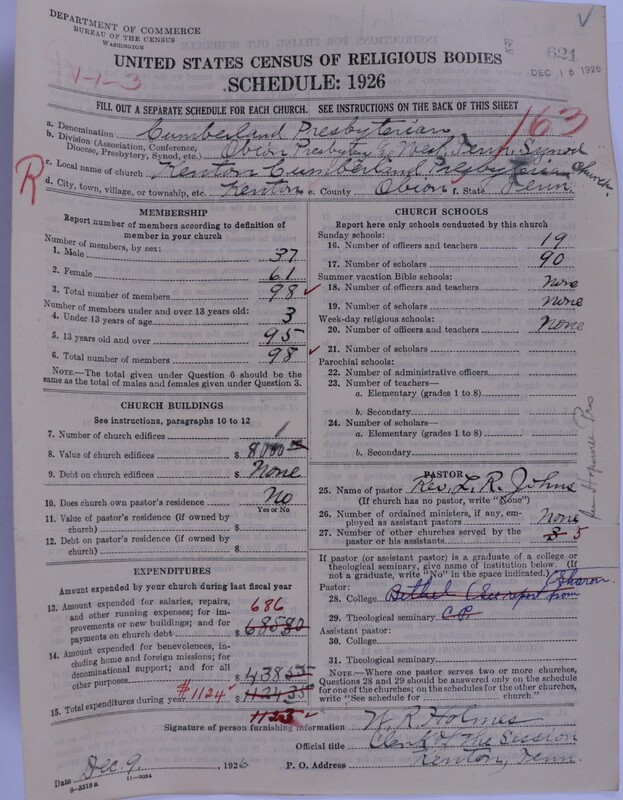 DEPARTMENT OF COMMERCE
BUREAU OF THE CENSUS
WASHINGTON
621
DEC 16 1926
UNITED STATES CENSUS OF RELIGIOUS BODIES
1-1-3
SCHEDULE: 1926
FILL OUT A SEPARATE SCHEDULE FOR EACH CHURCH. SEE INSTRUCTIONS ON THE BACK OF THIS SHEET
163
a. Denomination Cumberland Presbyterian
b. Division (Association, Conference, Diocese, Presbytery, Synod, etc.) Obion Presbytery West Tenn. Synod
R
c. Local name of church Kenton Cumberland Presbyterian Church.
d. City, town, village, or township, etc. Kenton e. County Obion f. State Tenn.
MEMBERSHIP
Report number of members according to definition of member in your church
Number of members, by sex:
1. Male 37
2. Female 61
3. Total number of members 98
Number of members under and over 13 years old:
4. Under 13 years of age 3
5. 13 years old and over 95
6. Total number of members 98
NOTE.—The total given under Question 6 should be the same as the total of males and females given under Question 3.
CHURCH BUILDINGS
See instructions, paragraphs 10 to 12
7. Number of church edifices 1
8. Value of church edifices $ 8000 00
9. Debt on church edifices $ None
10. Does church own pastor's residence No
Yes or No
11. Value of pastor's residence (if owned by church) $
12. Debt on pastor's residence (if owned by church) $
EXPENDITURES
Amount expended by your church during last fiscal year
13. Amount expended for salaries, repairs, and other running expenses; for improvements or new buildings; and for payments on church debt $ 685 80
686
14. Amount expended for benevolences, including home and foreign missions; for denominational support; and for all other purposes $ 438 55
15. Total expenditures during year $1124 $ 1124 35
1125
CHURCH SCHOOLS
Report here only schools conducted by this church
Sunday schools:
16. Number of officers and teachers 19
17. Number of scholars 90
Summer vacation Bible schools:
18. Number of officers and teachers none
19. Number of scholars none
Week-day religious schools:
20. Number of officers and teachers None
21. Number of scholars
Parochial schools:
22. Number of administrative officers
23. Number of teachers—
a. Elementary (grades 1 to 8)
b. Secondary
24. Number of scholars—
a. Elementary (grades 1 to 8)
b. Secondary
PASTOR
25. Name of pastor Rev. L. R. Johns
(If church has no pastor, write "None")
26. Number of ordained ministers, if any, employed as assistant pastors None
27. Number of other churches served by the pastor or his assistants 3 5
If pastor (or assistant pastor) is a graduate of a college or theological seminary, give name of institution below. (If not a graduate, write "No" in the space indicated.)
Pastor:
28. College Bethel (See report from Sharon
29. Theological seminary C.P.
Assistant pastor:
30. College
31. Theological seminary
NOTE.—Where one pastor serves two or more churches, Questions 28 and 29 should be answered only on the schedule for one of the churches; on the schedules for the other churches, write "See schedule for church."
Signature of person furnishing information W. R. Holmes
Official title Clerk of The Session
Date Dec. 9, 1926 P. O. Address Kenton, Tenn.
8-3318a 11-9034